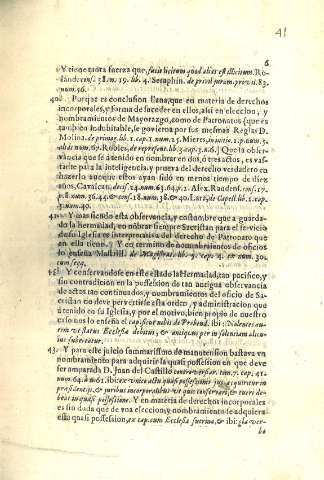 41
6
Y tiene tanta fuerza que, facit licitum quod alias est illicitum. Ro-
land. conf. 38. n. 19. lib. 4. Seraphin. de privil. juram. 83.
num. 56.
40. Porque es conclusion llana, que en materia de derechos
incorporales, y forma de suceder en ellos, assi en eleccion, y
nombramientos de Mayorazgo, como de Patronatos (que es
tambien indubitable, se govierna por sus mesmas Reglas D.
Molina. de primog. lib. 1. cap. num. 25. Mieres,
num. 67. Robles, de represent. lib. 3. cap. 3. n. 6.) Que la obser-
vancia que se à tenido en nombrar en dos, ò tres actos, es vas-
tante para la inteligencia, y prueba del derecho verdadero en
hazerlo aunque estos ayan sido en menos tiempo de diez
años, Cavalcan, decis. 24. num. 63. 64. Alex. Raudens. conf. 17.
num. 36. 44. & conf. 18. num. 38. & 40. Lara, de Capell. lib. 1. cap.
num. 40.
41. Y mas siendo esta observancia, y costumbre que a guarda-
do la Hermandad, en nõbrar siempre Sacristan para el servicio
de su Iglesia es interpretativa del derecho de Patronato que
en ella tiene. Y en termino de nombramientos de oficios
lo enseña Mastrill. de Magistrat. lib. 3. cap. 4. en num. 30.
cum seqq.
42. Y conservandose en este estado la Hermandad, tan pacifico, y
sin contradicion en la possession de tan antigua observancia
de actos tan continuados, y nombramientos del oficio de Sa-
cristan no deve pervertirse esta orden, y administracion que
à tenido en su Iglesia, y por el motivo, bien propio de nuestro
caso nos lo enseña el cap. de Præbend. ibi: Nolentes au-
tem vt status Ecclesiæ debitus, & antiquus per insolentiam alicu-
ius subvertatur.
43. Y para este juicio sumarissimo de manutension bastava un
nombramiento para adquirir la quasi possession en que deve
ser amparada D. Juan del Castillo controversiar. tim. 7. cap. 41.
num. 64. ibi: ex vnico actu quasi possessionem jus acquiritur in
præsidentijs, & juribus incorporalibus in quo conservari, & tueri de-
bet in quasi possessione. Y en materia de derechos incorporales
es sin duda que de vna eleccion, y nombramiento se adquiera
esta quasi possession, ex cap. cum Ecclesia sutrina, & ibi: glos ver-
bo